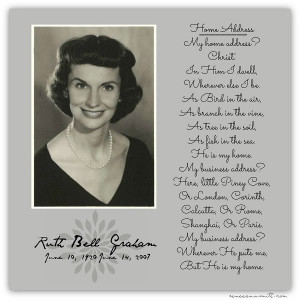 Home Address
My home address?
Christ.
In Him I dwell,
Wherever else I be.
As Bird in the air,
As branch in the vine,
As tree in soil,
As fish in the sea.
He is my home.
My business address?
Here, little Piney Cove,
Or London, Corinth,
Calcutta, Or Rome,
Shanghai, Or Paris.
My business address?
Wherever He puts me,
But He is my home.
Ruth Bell Graham
June 10, 1920 June 14, 2007